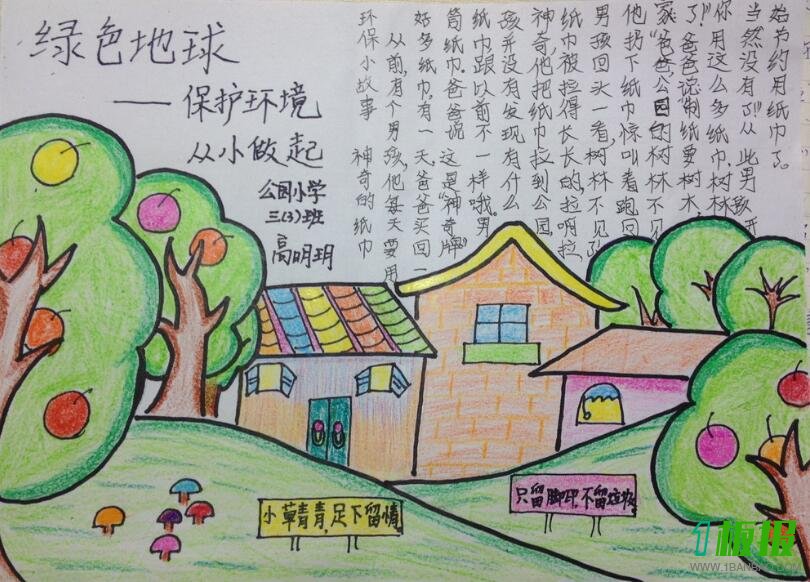 绿色地球
——保护环境
从小做起
公园小学
三(3)班
高明玥
环保小故事 神奇的纸巾
从前,有个男孩,他每天要用
好多纸巾,有一天,爸爸买回一
筒纸巾。爸爸说 这是"神奇牌"
纸巾跟以前不一样哦。男
孩并没有发现有什么
神奇,他把纸巾拉到公园,
纸巾被拉得长长的,拉啊拉,
男孩回头一看,树林不见了
他扔下纸巾惊叫着跑回
家"爸爸公园的树林不见
了!"爸爸说"制纸要树木,
你用这么多纸巾,树林
当然没有了!"从此男孩开
始节约用纸巾了。
小草青青,足下留情。
只留脚印,不留垃圾。
1板报
WWW.1BANBAO.COM